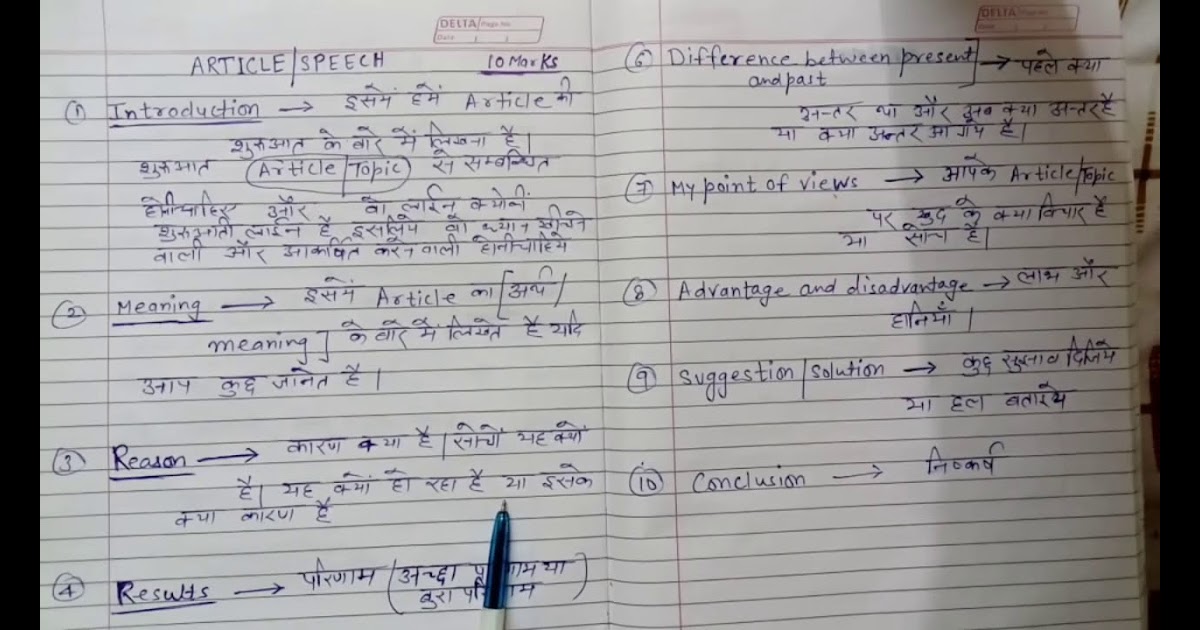 DELTA Page No.
Date
ARTICLE/SPEECH 10 Marks
① Introduction → इसमें हमें Article की
शुरुआत के बारे में लिखना है।
शुरुआत (Article/Topic) से सम्बन्धित
होनीचाहिए और वो लाईन क्योकीं
शुरुआती लाईन है इसलिये वो ध्यान खीचने
वाली और आकर्षित करने वाली होनीचाहिये
② Meaning → इसमें Article का [अर्थ/
meaning] के बारे में लिखते है यदि
आप कुछ जानते है।
③ Reason → कारण क्या है/सोचों यह क्यों
है। यह क्यों हो रहा है या इसके
क्या कारण है
④ Results → परिणाम (अच्छा या
बुरा)
DELTA Page No.
Date
⑥ Difference between present] → पहले क्या
and past
अन्तर था और अब क्या अन्तर है
या क्या अन्तर आ गये है।
⑦ My point of views → आपके Article/Topic
पर खुद के क्या विचार है
या सोच है।
⑧ Advantage and disadvantage → लाभ और
हानियाँ।
⑨ Suggestion/solution → कुछ सुझाव दिजिये
या हल बताइये
⑩ Conclusion → निष्कर्ष